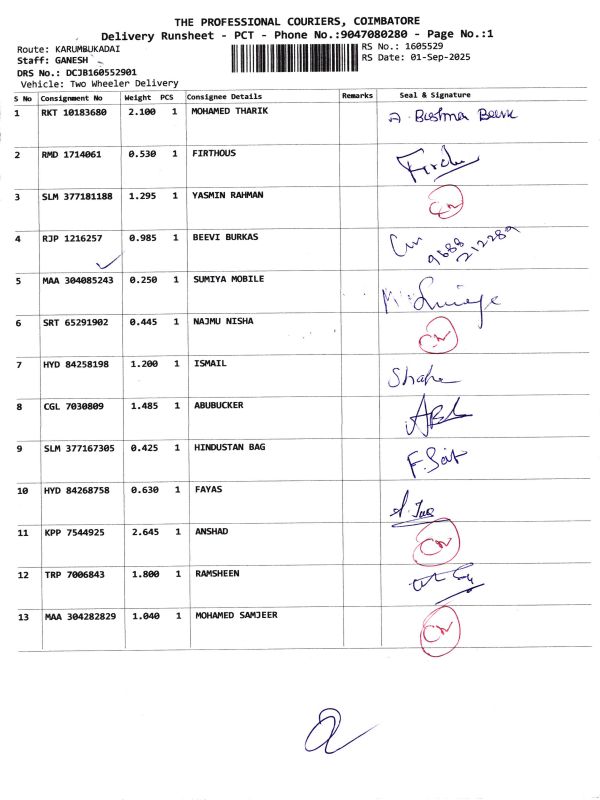 THE PROFESSIONAL COURIERS, COIMBATORE
Delivery Runsheet - PCT - Phone No.:9047080280 - Page No.:1
Route: KARUMBUKADAI
RS No.: 1605529
Staff: GANESH
RS Date: 01-Sep-2025
DRS No.: DCJB160552901
Vehicle: Two Wheeler Delivery
S No Consignment No Weight PCS Consignee Details Remarks Seal & Signature
1 RKT 10183680 2.100 1 MOHAMED THARIK
2 RMD 1714061 0.530 1 FIRTHOUS
3 SLM 377181188 1.295 1 YASMIN RAHMAN CN
4 RJP 1216257 0.985 1 BEEVI BURKAS 9688 212289
5 MAA 304085243 0.250 1 SUMIYA MOBILE
6 SRT 65291902 0.445 1 NAJMU NISHA CN
7 HYD 84258198 1.200 1 ISMAIL
8 CGL 7030809 1.485 1 ABUBUCKER
9 SLM 377167305 0.425 1 HINDUSTAN BAG
10 HYD 84268758 0.630 1 FAYAS
11 KPP 7544925 2.645 1 ANSHAD CN
12 TRP 7006843 1.800 1 RAMSHEEN
13 MAA 304282829 1.040 1 MOHAMED SAMJEER CN